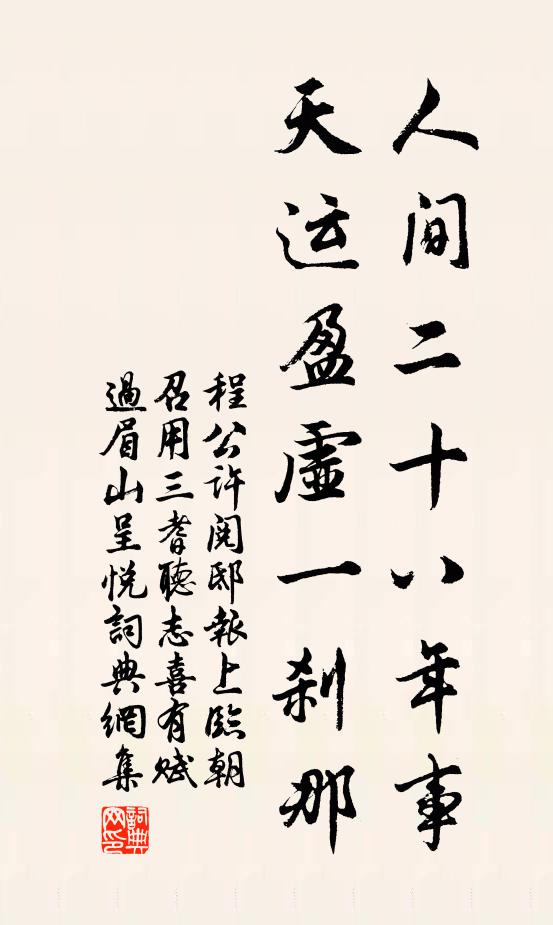 人间二十八年事
天运盈虚一刹那
程公许阅邸報上臨朝
召用三耆聽志喜有赋
過眉山呈悦詞典網集
詞典
网印